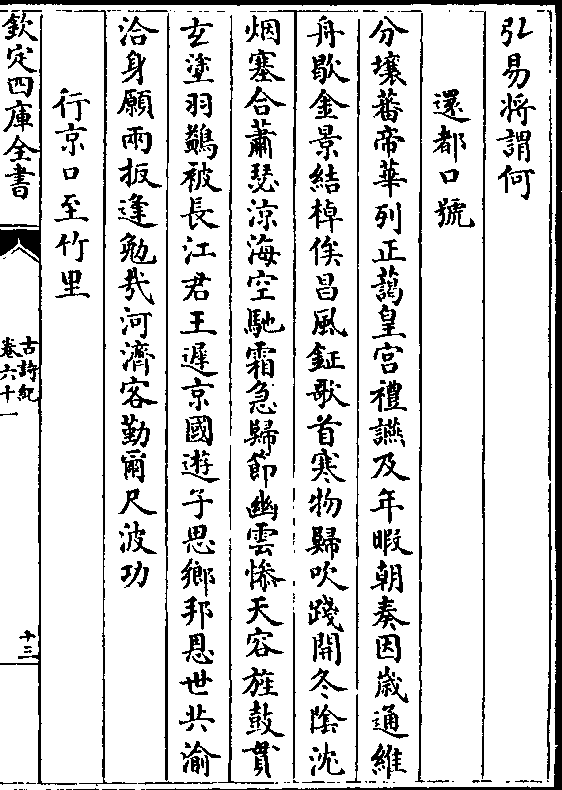 弘易將謂何
還都口號
分壤蕃帝華列正藹皇宮禮讌及年暇朝奏因歲通維
舟歇金景結棹俟昌風鉦歌首寒物歸吹踐開冬陰沈
烟塞合蕭瑟涼海空馳霜急歸節幽雲慘天容旌鼓貫
玄塗羽鷁被長江君王遲京國遊子思鄉邦恩世共渝
洽身願兩扳逢勉哉河濟客勤爾尺波功
行京口至竹里
欽定四庫全書
古詩紀
卷六十一
十三